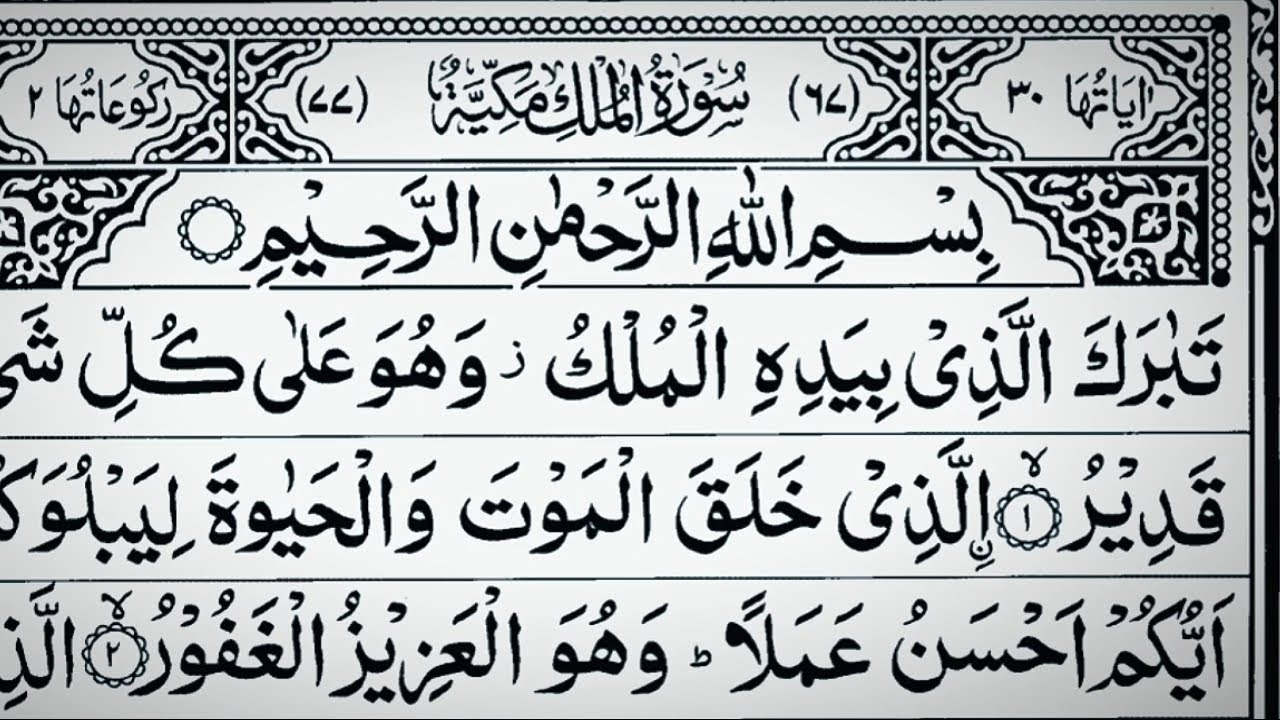 اٰيَاتُهَا ٣٠ (٦٧) سُوْرَةُ الْمُلْكِ مَكِّيَّةٌ (٧٧) رُكُوْعَاتُهَا ٢
بِسْمِ اللّٰهِ الرَّحْمٰنِ الرَّحِيْمِ
تَبٰرَكَ الَّذِىْ بِيَدِهِ الْمُلْكُ ز وَهُوَ عَلٰى كُلِّ
قَدِيْرُ ۙ﴿١﴾ اۨلَّذِىْ خَلَقَ الْمَوْتَ وَالْحَيٰوةَ
اَيُّكُمْ اَحْسَنُ عَمَلًا ؕ وَهُوَ الْعَزِيْزُ الْغَفُوْرُ ۙ﴿٢﴾